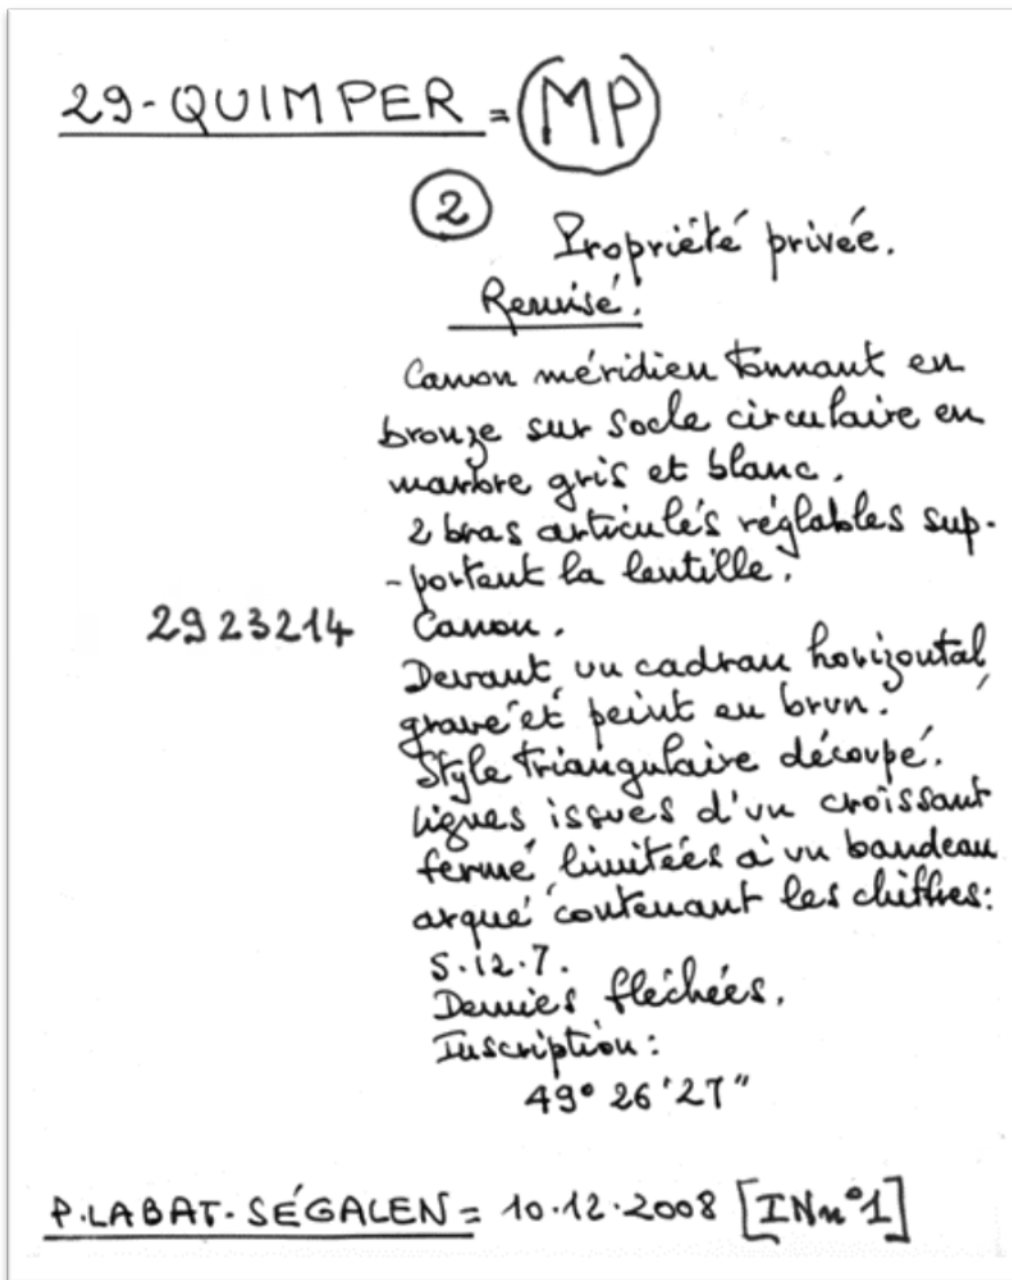 29-QUIMPER = (MP)
2
Propriété privée.
Remisé.
Canon méridien tonnant en
bronze sur socle circulaire en
marbre gris et blanc.
2 bras articulés réglables sup-
-portent la lentille.
2923214 Canon.
Devant, un cadran horizontal,
gravé et peint en brun.
Style triangulaire découpé.
Lignes issues d'un croissant
fermé, limitées à un bandeau
arqué contenant les chiffres:
5.12.7.
Demies fléchées.
Inscription:
49° 26' 27"
P. LABAT-SÉGALEN = 10.12.2008 [IN n°1]